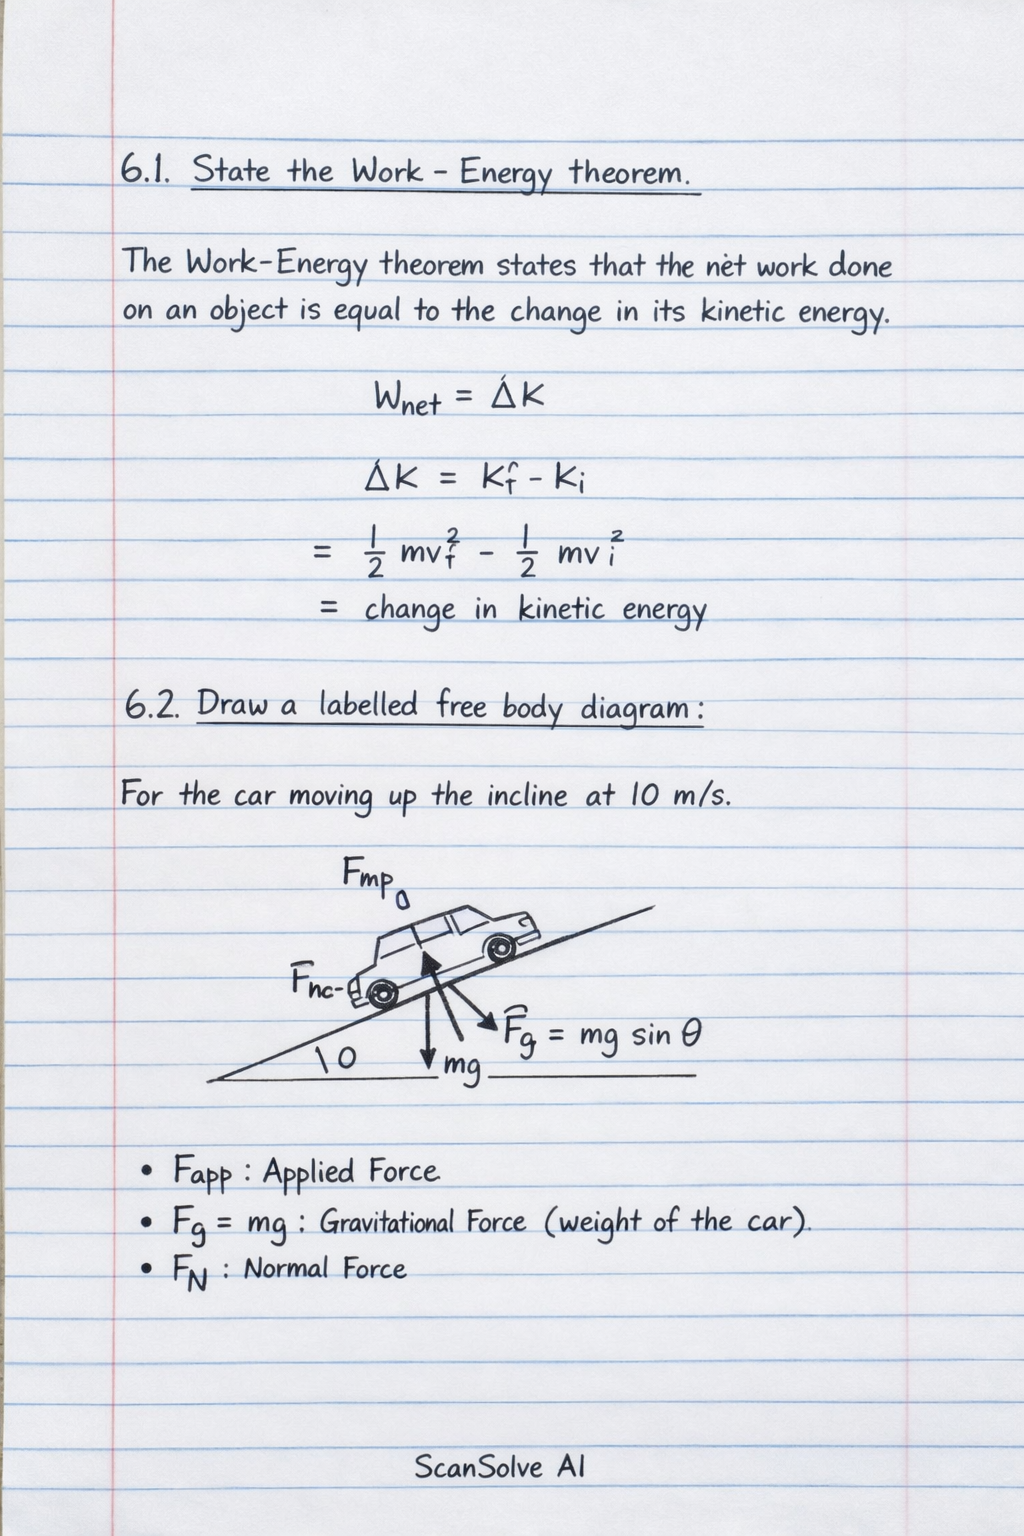 6.1. State the Work - Energy theorem.
The Work-Energy theorem states that the net work done
on an object is equal to the change in its kinetic energy.
Wnet = ΔK
ΔK = Kf - Ki
= 1/2 mvf² - 1/2 mvi²
= change in kinetic energy
6.2. Draw a labelled free body diagram:
For the car moving up the incline at 10 m/s.
Fmp
Fnc-
Fg = mg sin θ
10
mg
• Fapp : Applied Force
• Fg = mg : Gravitational Force (weight of the car).
• FN : Normal Force
ScanSolve AI